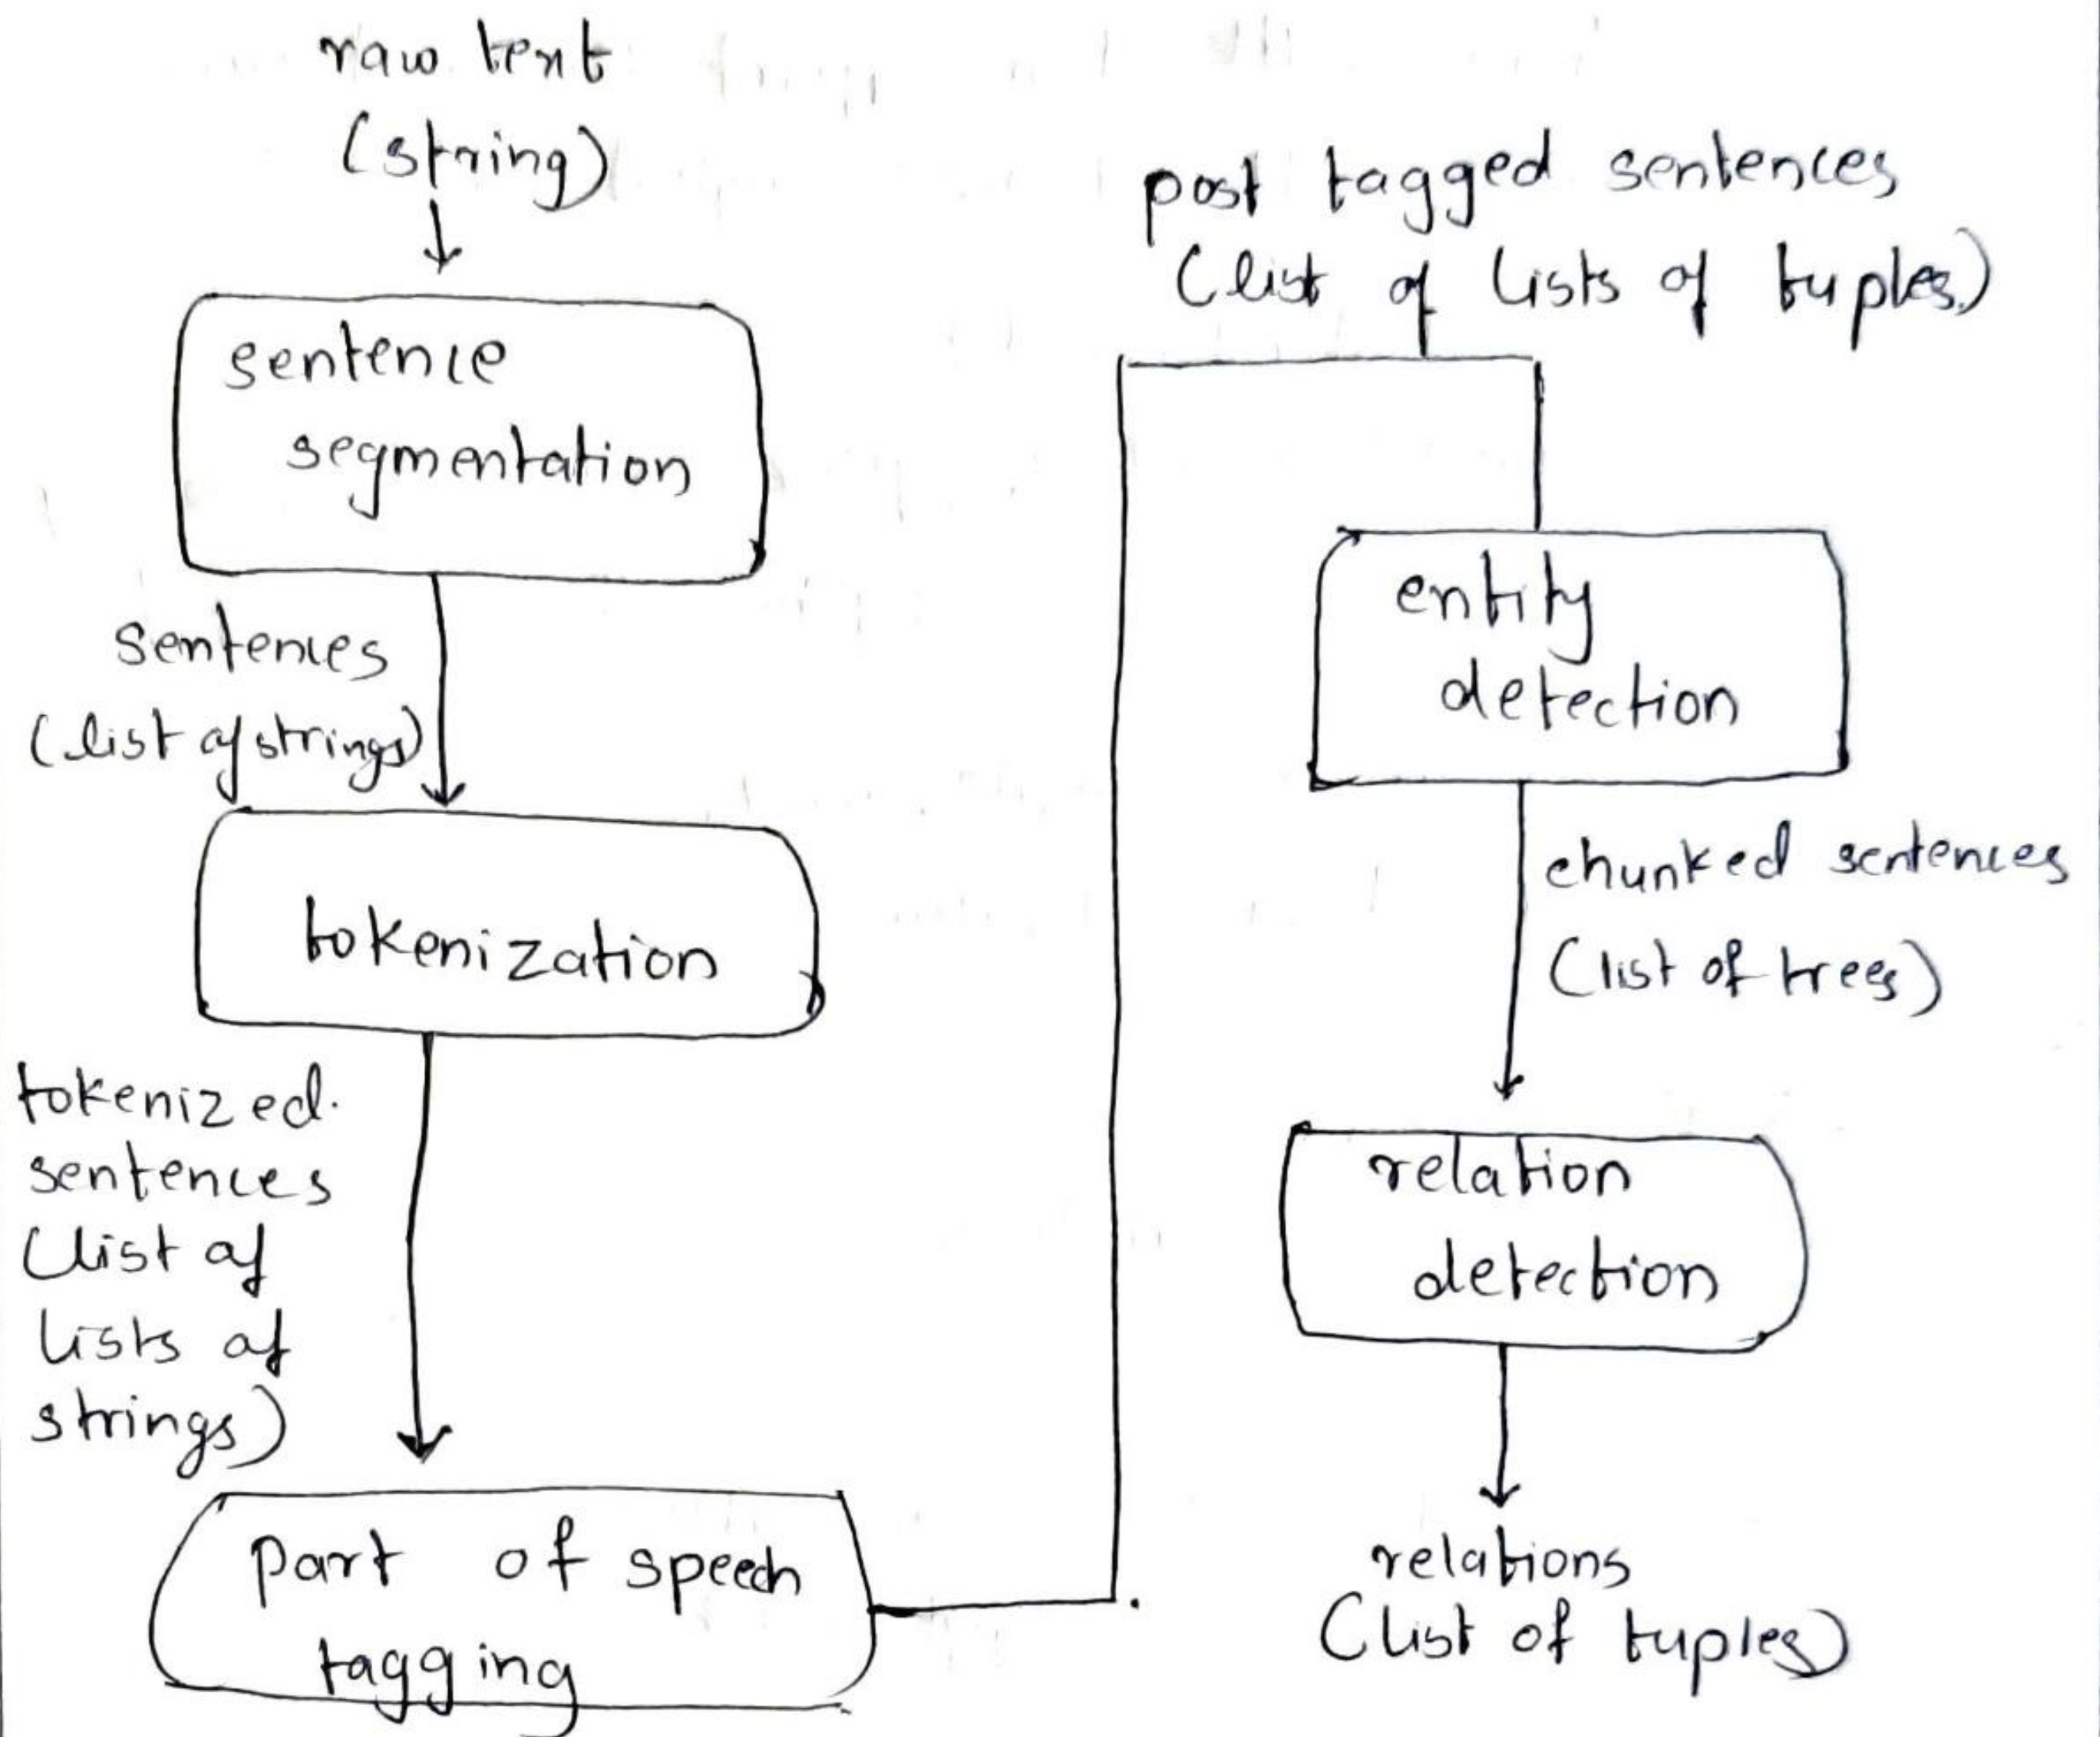 raw text
(string)
sentence
segmentation
sentences
(list of strings)
tokenization
tokenized.
sentences
(list of
lists of
strings)
part of speech
tagging
post tagged sentences
(list of lists of tuples)
entity
detection
chunked sentences
(list of trees)
relation
detection
relations
(list of tuples)